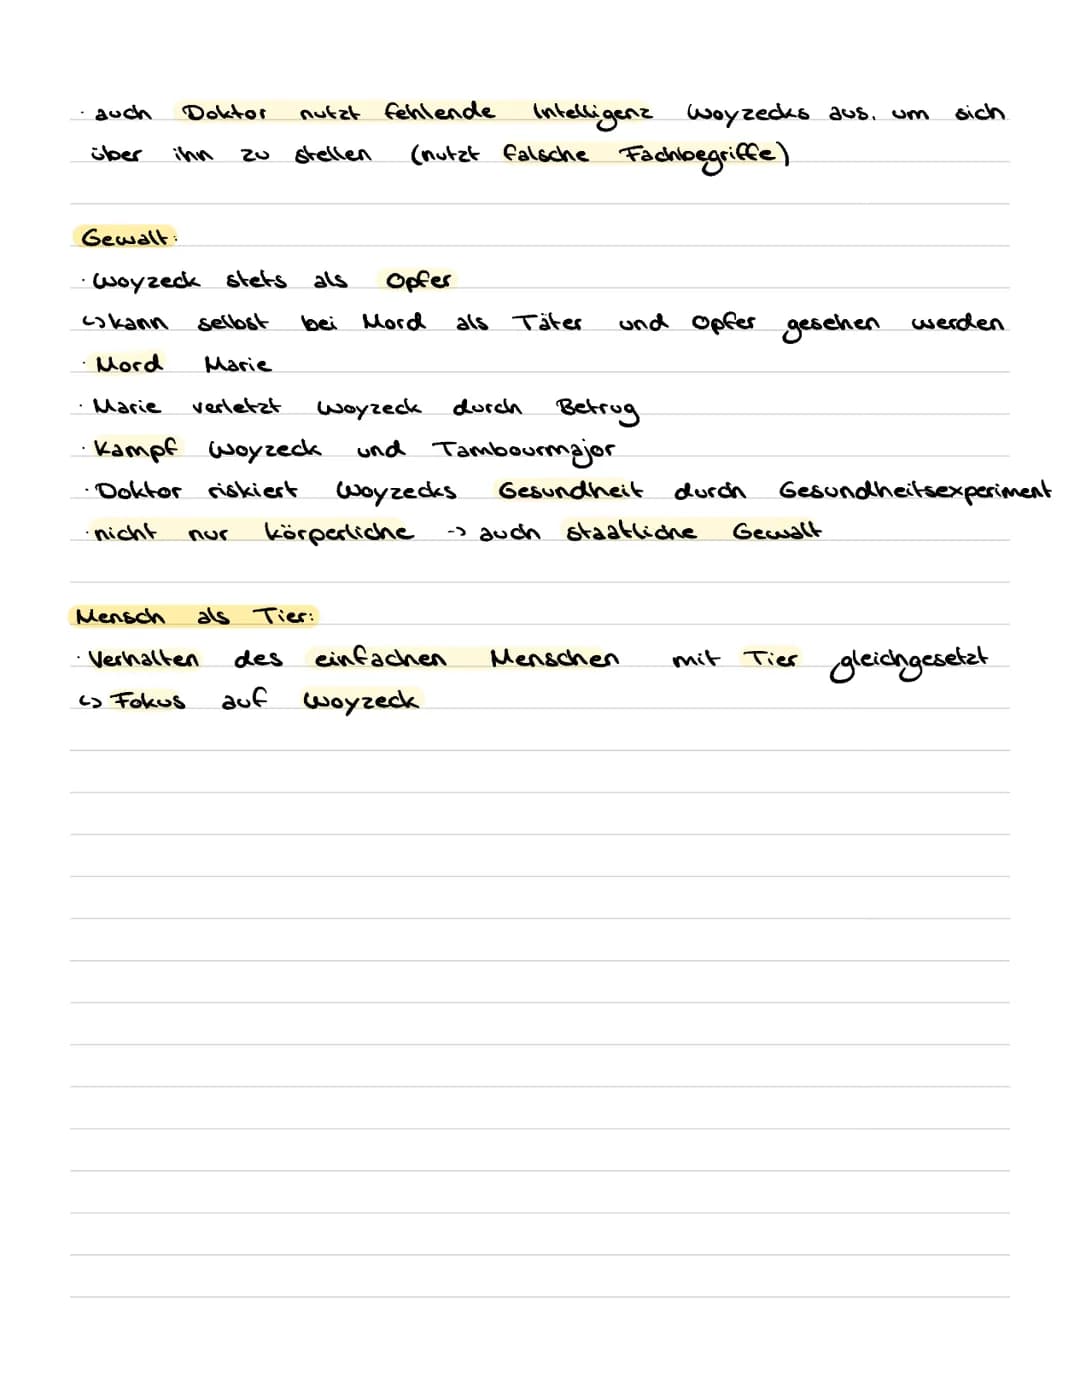 · auch Doktor nutzt fehlende Intelligenz Woyzecks aus, um sich
über ihn zu stellen (nutzt falsche Fachbegriffe)
Gewalt:
· Woyzeck stets als Opfer
↪ kann selbst bei Mord als Täter und Opfer gesehen werden
· Mord Marie
· Marie verletzt Woyzeck durch Betrug
· Kampf Woyzeck und Tambourmajor
· Doktor riskiert Woyzecks Gesundheit durch Gesundheitsexperiment
· nicht nur körperliche -> auch staatliche Gewalt
Mensch als Tier:
· Verhalten des einfachen Menschen mit Tier gleichgesetzt
↪ Fokus auf Woyzeck